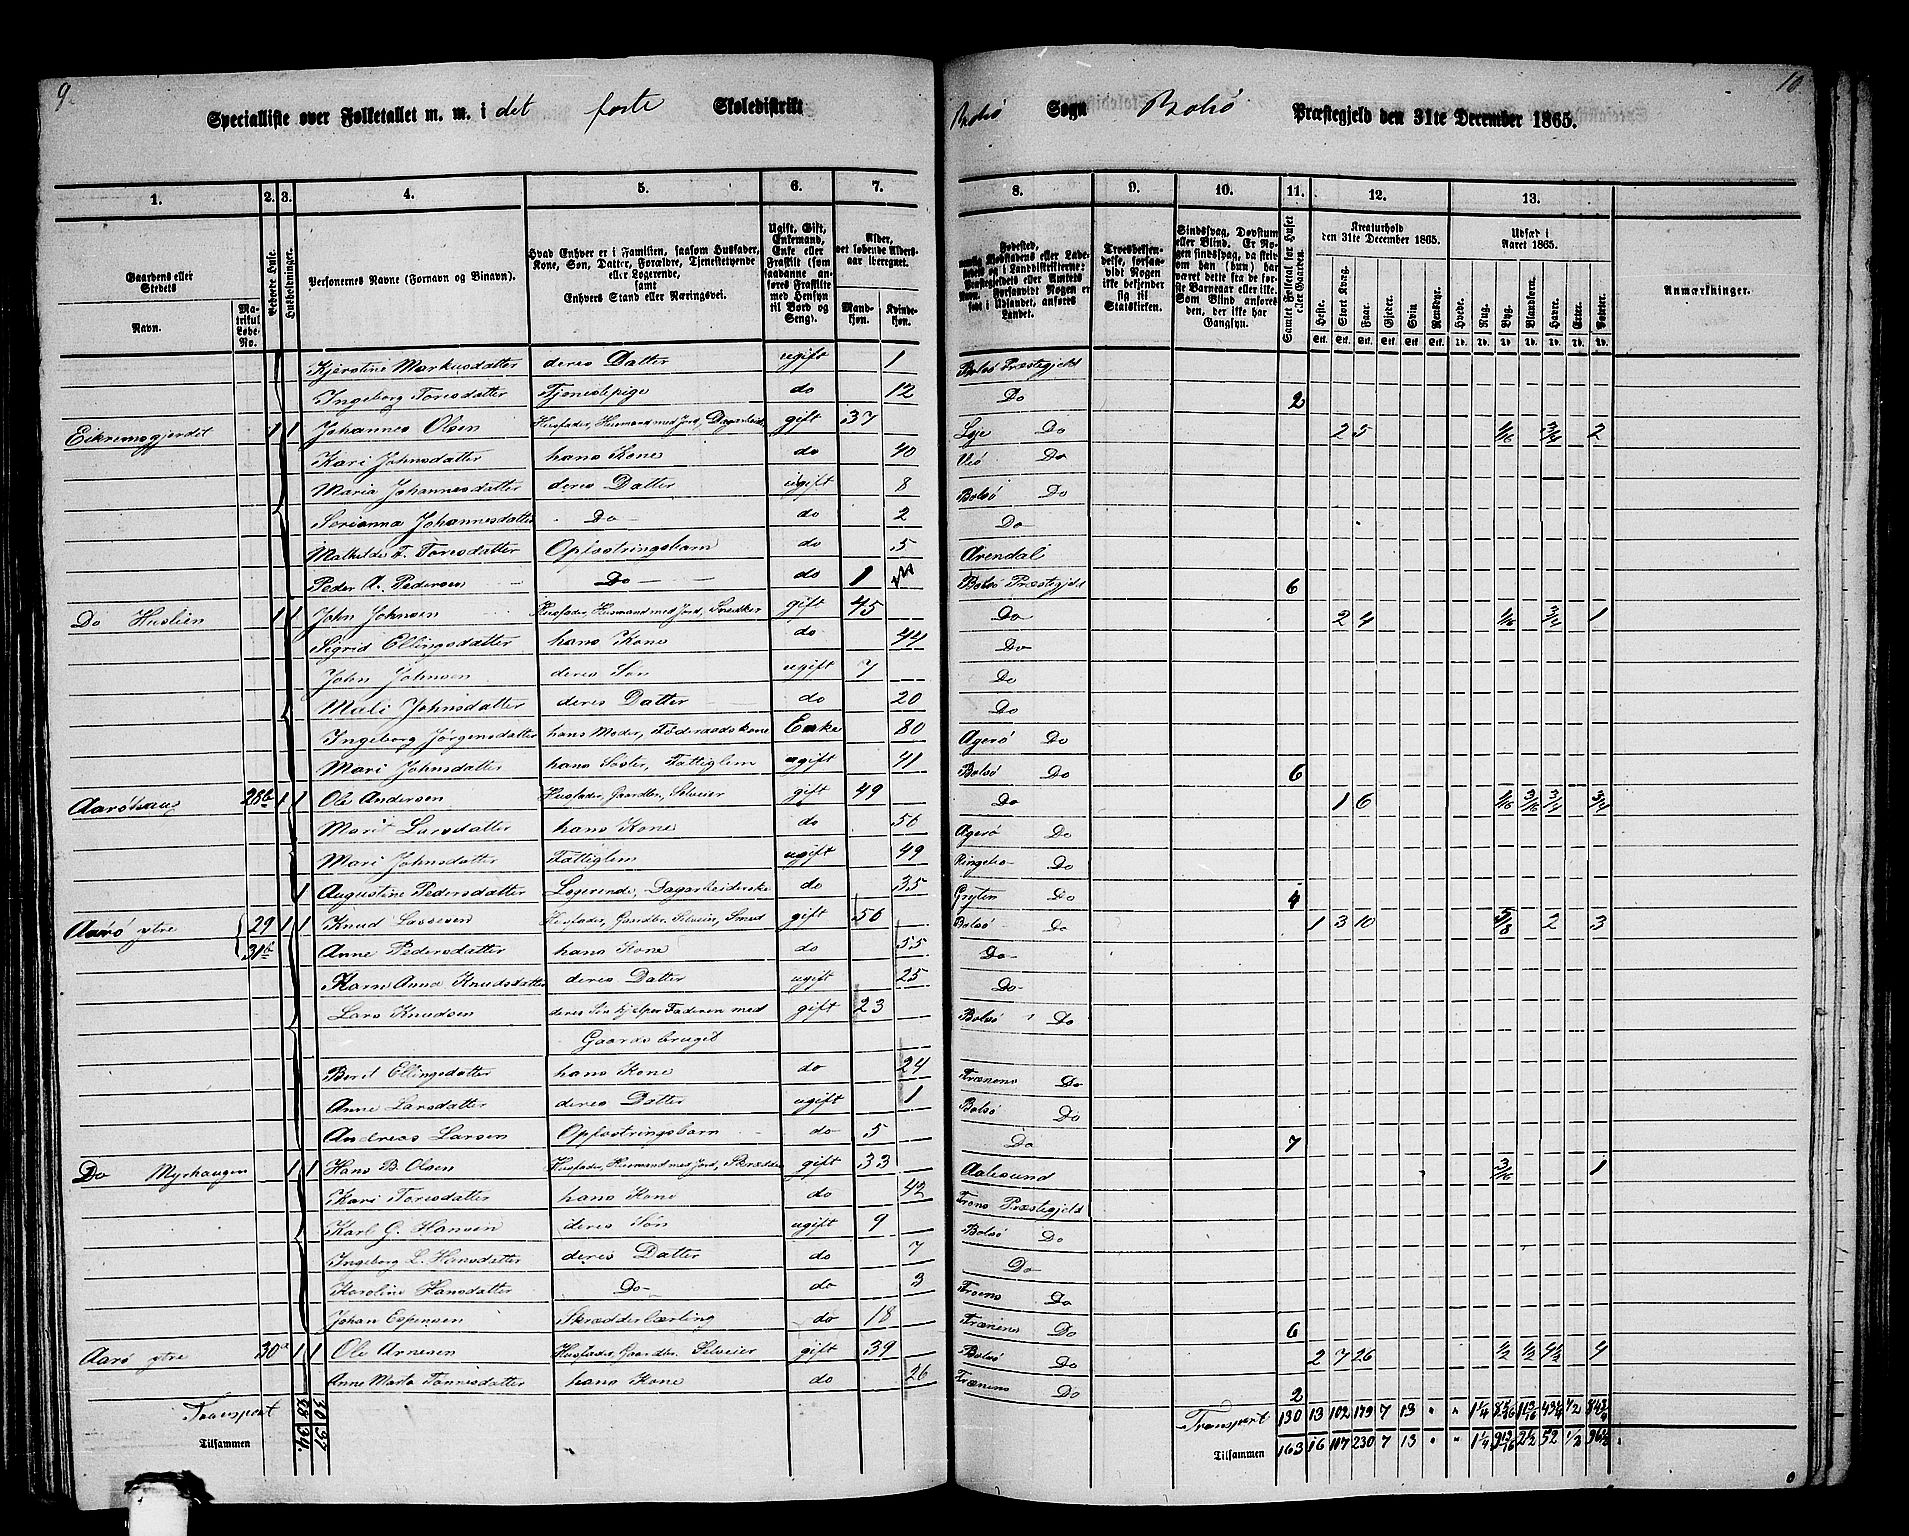 9.
Specialliste over Folketallet m. m. i det første Skoledistrikt
Bolsö Sogn Bolsö Præstegjeld den 31te December 1865.
10
1. 2. 3. 4. 5. 6. 7. 8. 9. 10. 11. 12. 13.
Gaardens eller Stedets
Navn. Matrikul Løbe-No.
Beboede Huse.
Husholdninger.
Personernes Navne (Fornavn og Binavn).
Hvad Enhver er i Familien, saasom Husfader, Kone, Søn, Datter, Forældre, Tjenestetyende eller Logerende, samt Enhvers Stand eller Næringsvei.
Ugift, Gift, Enkemand, Enke eller Fraskilt (som saadanne anføres Fraskilte med Hensyn til Bord og Seng).
Alder, det løbende Alders-aar iberegnet.
Mandkjøn. Kvindekjøn.
Samlet Folketal for Huset eller Gaarden.
Kreaturhold den 31te December 1865.
Udsæd i Aaret 1865.
Anmærkninger.
Heste. Stort Kvæg. Faar. Gjeder. Svin. Rensdyr. Hvede. Rug. Byg. Blandkorn. Havre. Erter. Poteter.
Kjerstine Markusdatter deres Datter ugift 1 Bolsö Præstegjeld
Ingeborg Toresdatter Tjenestepige do 12 Do 2
Eikremsgjerdet 1 1 Johannes Olsen Husfader, Husmand med Jord, Dagarbeider gift 37 Do 2 5 1/16 2
Kari Johnsdatter hans Kone do 40 Veö Do
Maria Johannesdatter deres Datter ugift 8 Bolsö Do
Serianna Johannesdatter Do do 2 Do
Mathilde T. Toresdatter Opfostringsbarn do 5 Arendal
Peder A. Pedersen Do do 1 Bolsö Præstegjeld 6
Do Huslien 1 1 John Johnsen Husfader, Husmand med Jord, Snedker gift 45 Do 2 4 1/16 3/4 1
Sigrid Ellingsdatter hans Kone do 44 Do
John Johnsen deres Søn ugift 7 Do
Mali Johnsdatter deres Datter do 20 Do
Ingeborg Jörgensdatter hans Moder, Föderaadskone Enke 80 Agerö Do
Mari Johnsdatter hans Söster, Fattiglem ugift 41 Bolsö Do 6
Aaröhaug 28b 1 1 Ole Andersen Husfader, Gaardbr. Selveier gift 49 Do 1 6 1/16 3/16
Marit Larsdatter hans Kone do 56 Agerö Do
Mari Johnsdatter Fattiglem ugift 49 Do
1 Augustine Pedersdatter Logerende, Dagarbeiderske do 35 Gryten Do 4
Aarö ytre 29 1 1 Knud Lassesen Husfader, Gaardbr. Selveier, Smed gift 56 Bolsö Do 1 3 10 5/8 2 3
31b Anne Pedersdatter hans Kone do 55 Do
Karn Anna Knudsdatter deres Datter ugift 25 Do
Lars Knudsen deres Søn hjelper Faderen med gift 23 Bolsö Do
Gaardsbruget
Berit Ellingsdatter hans Kone do 24 Frænens Do
Anne Larsdatter deres Datter ugift 1 Bolsö Do
Andreas Larsen Opfostringsbarn do 5 Do 7
Do Myrhaugen 1 1 Hans B. Olsen Husfader, Husmand med Jord, Skrædder gift 33 Aalesund 3/16 1
Kari Toresdatter hans Kone do 42 Præstegjeld
Karl G. Hansen deres Søn ugift 9 Bolsö Do
Ingeborg L. Hansdatter deres Datter do 7 Do
Karoline Hansdatter Do do 3 Do
Johan Espensen Skrædderlærling do 18 Frænens Do 6
Aarö ytre 30a 1 1 Ole Arnesen Husfader, Gaardbr. Selveier gift 39 Bolsö Do 2 7 26 1/2 1/2 4 1/2 4
Anne Marta Tonnesdatter hans Kone do 26 Frænens Do 2
Transport 28 30 Transport 130 13 102 179 7 13 " " 1 1/4
Tilsammen 34. 37 Tilsammen 163 16 117 230 7 13 " " 1 1/4 2 1/2 52 1/2